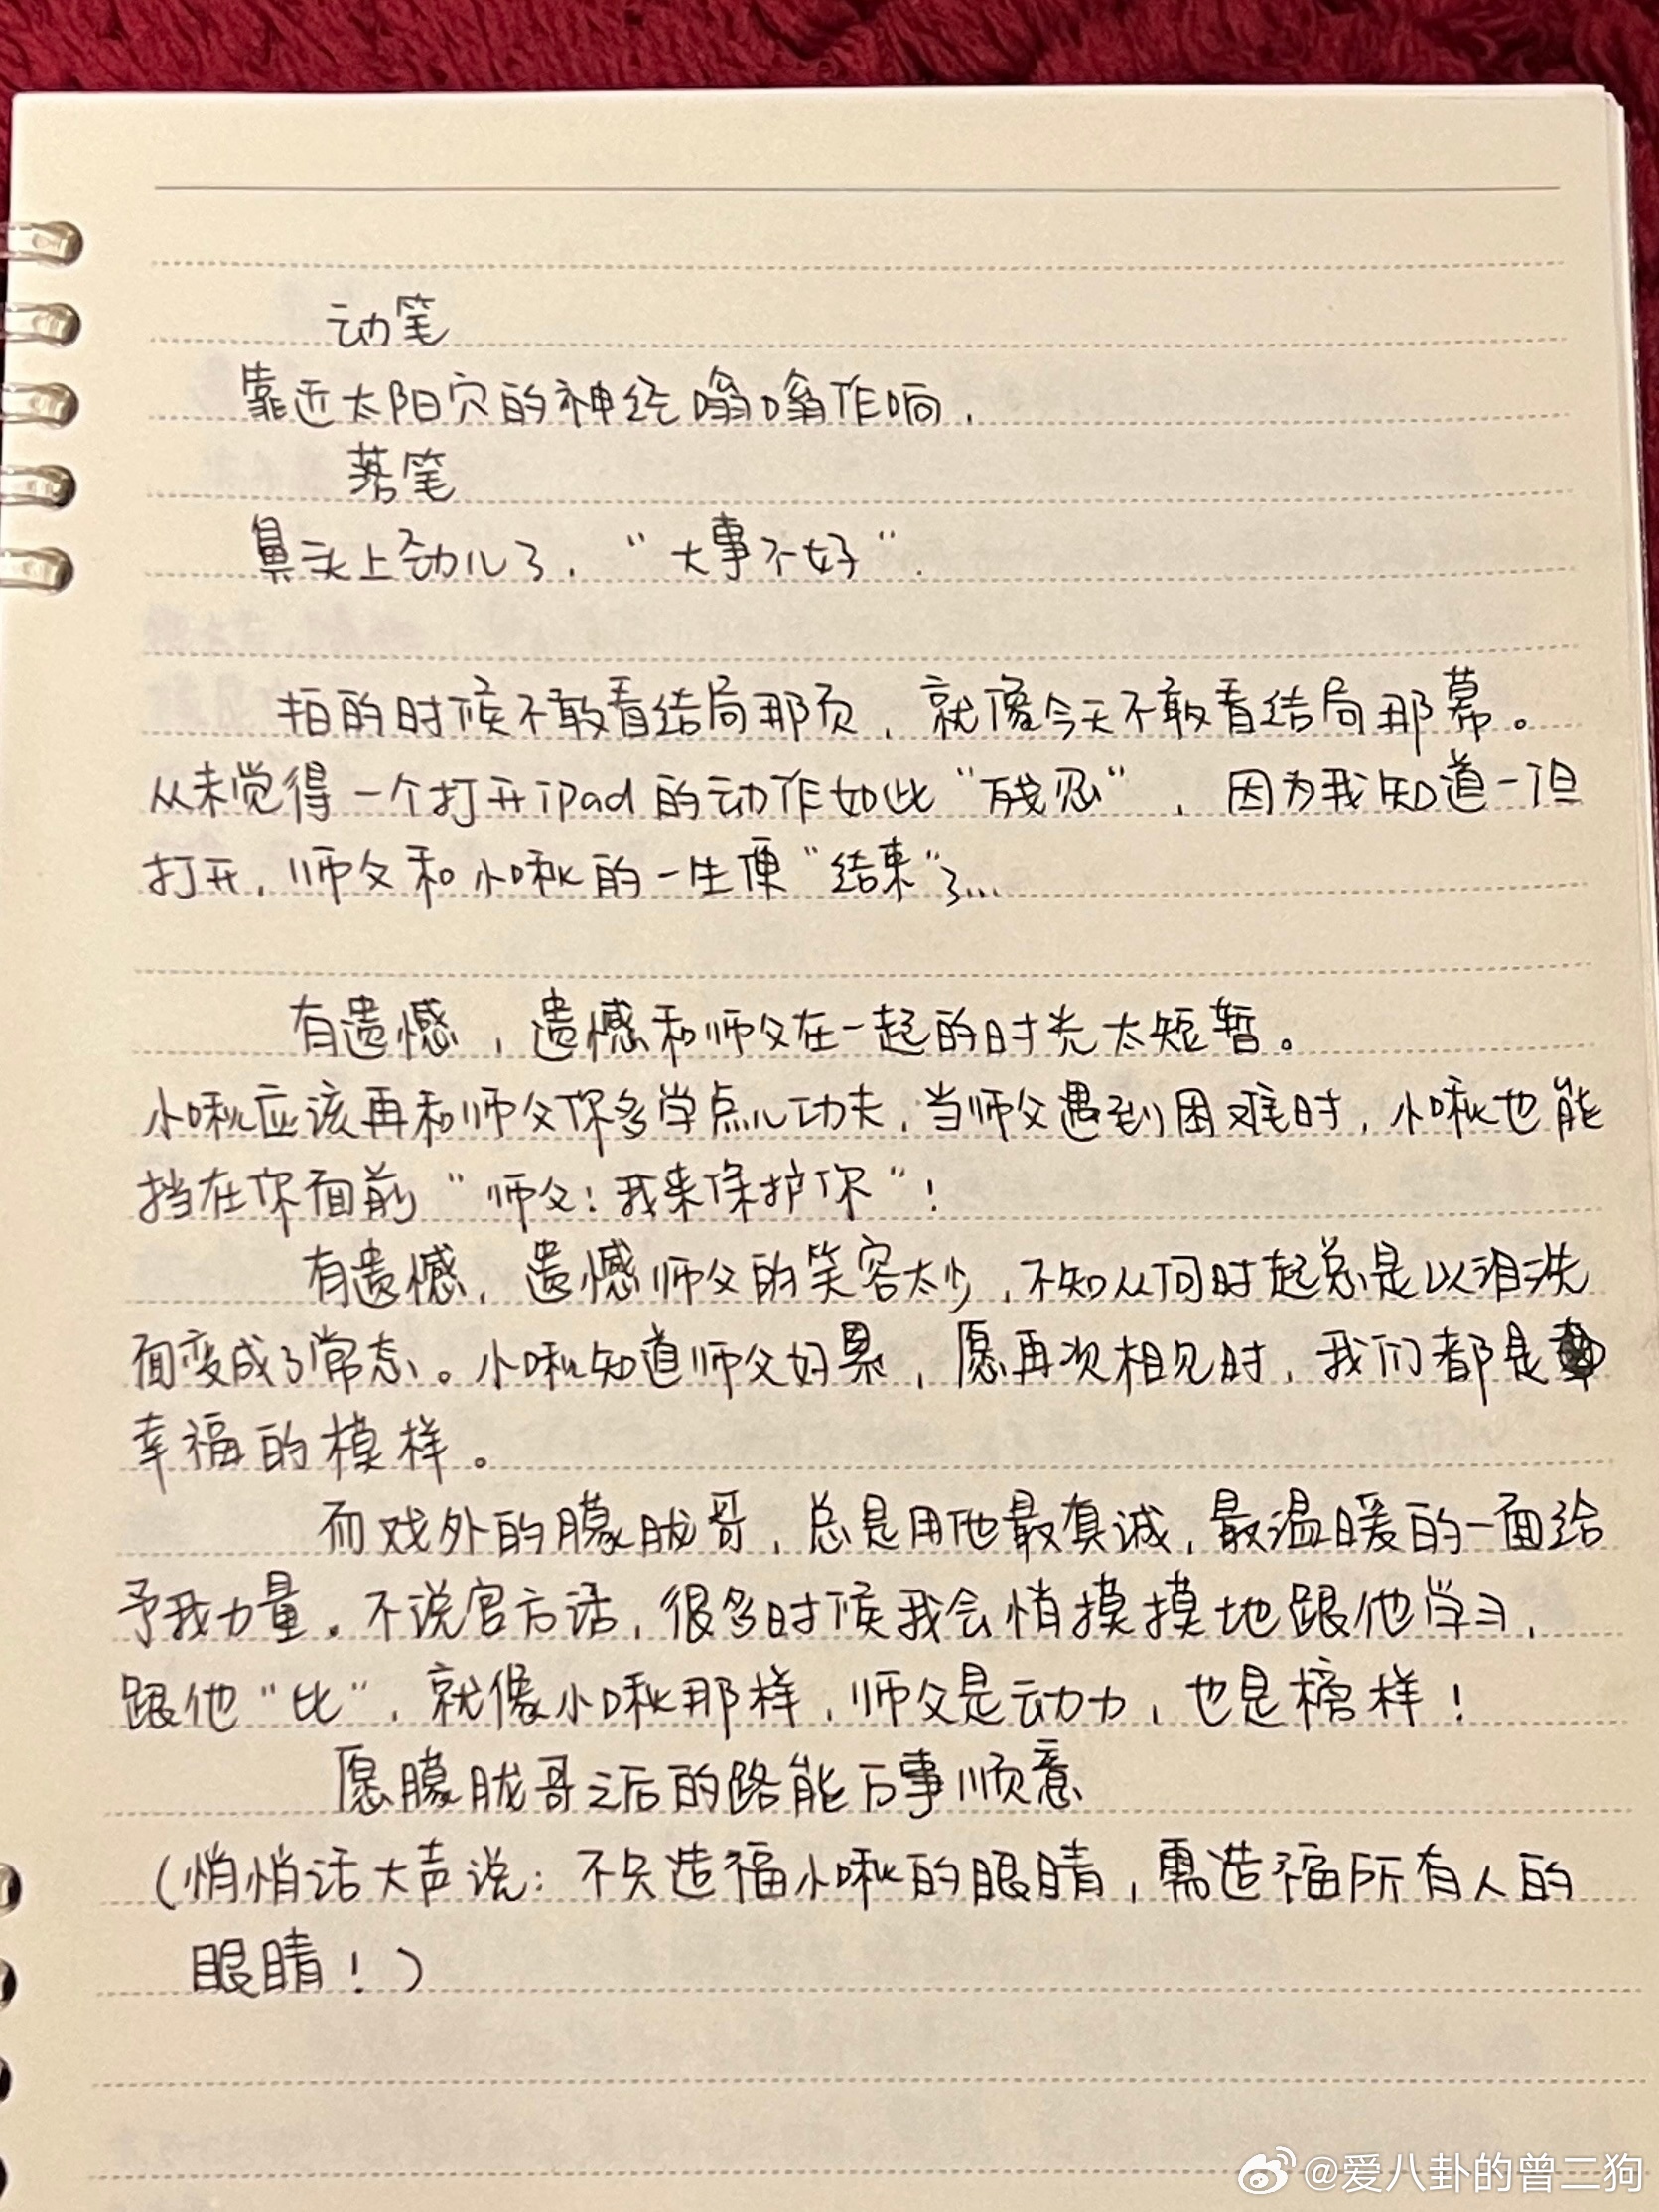 动笔
靠近太阳穴的神经嗡嗡作响，
落笔
鼻头上劲儿了，“大事不好”.
拍的时候不敢看结局那页，就像今天不敢看结局那幕。
从未觉得一个打开ipad的动作如此“残忍”，因为我知道一但
打开，师父和小啾的一生便“结束”了...
有遗憾，遗憾和师父在一起的时光太短暂。
小啾应该再和师父你多学点儿功夫，当师父遇到困难时，小啾也能
挡在你面前“师父：我来保护你”！
有遗憾，遗憾师父的笑容太少，不知从何时起总是以泪洗
面变成了常态。小啾知道师父好累，愿再次相见时，我们都是
幸福的模样。
而戏外的朦胧哥，总是用他最真诚，最温暖的一面给
予我力量。不说官方话，很多时候我会悄摸摸地跟他学习，
跟他“比”，就像小啾那样，师父是动力，也是榜样！
愿朦胧哥之后的路能万事顺意
（悄悄话大声说：不只造福小啾的眼睛，需造福所有人的
眼睛！）
@爱八卦的曾二狗